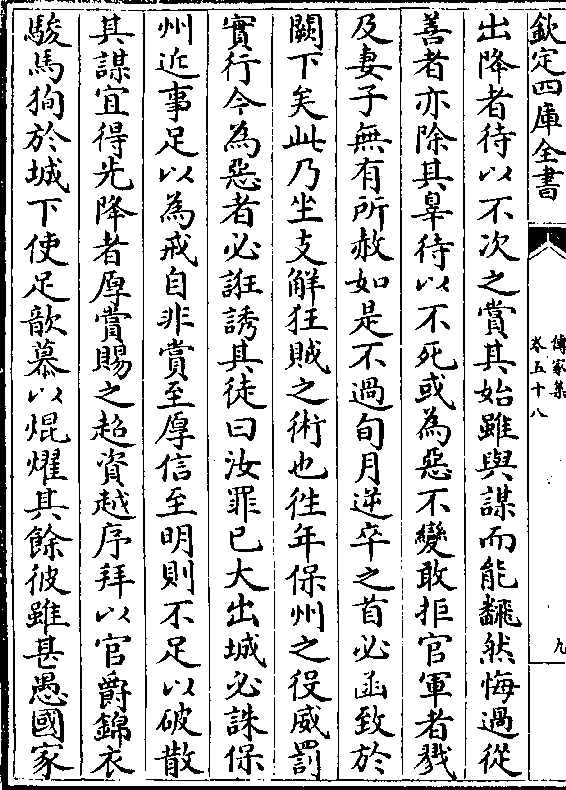 欽定四庫全書
傳家集
卷五十八
九
出降者待以不次之賞其始雖與謀而能飜然悔過從
善者亦除其辠待以不死或為惡不變敢拒官軍者戮
及妻子無有所赦如是不過旬月逆卒之首必函致於
闕下矣此乃坐支解狂賊之術也徃年保州之役威罰
實行今為惡者必誑誘其徒曰汝罪已大出城必誅保
州近事足以為戒自非賞至厚信至明則不足以破散
其謀宜得先降者厚賞賜之超資越序拜以官爵錦衣
駿馬狥於城下使足歆慕以焜燿其餘彼雖甚愚國家